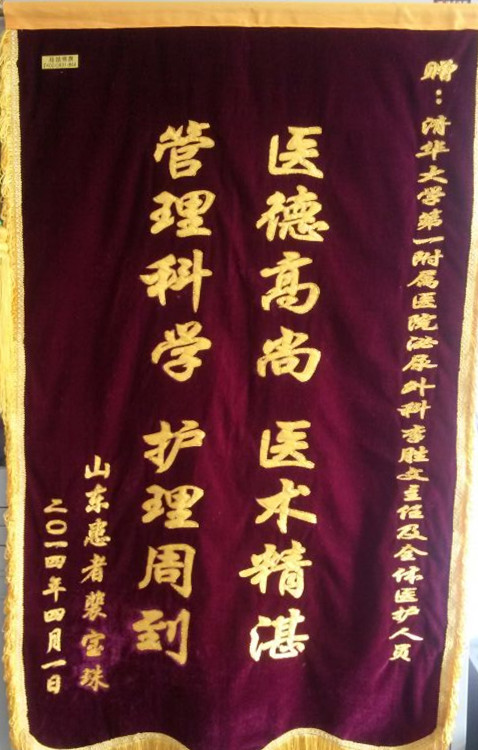 赠：清华大学第一附属医院泌尿外科李胜文主任及全体医护人员
医德高尚 医术精湛
管理科学 护理周到
山东患者裴宝珠
二〇一四年四月一日